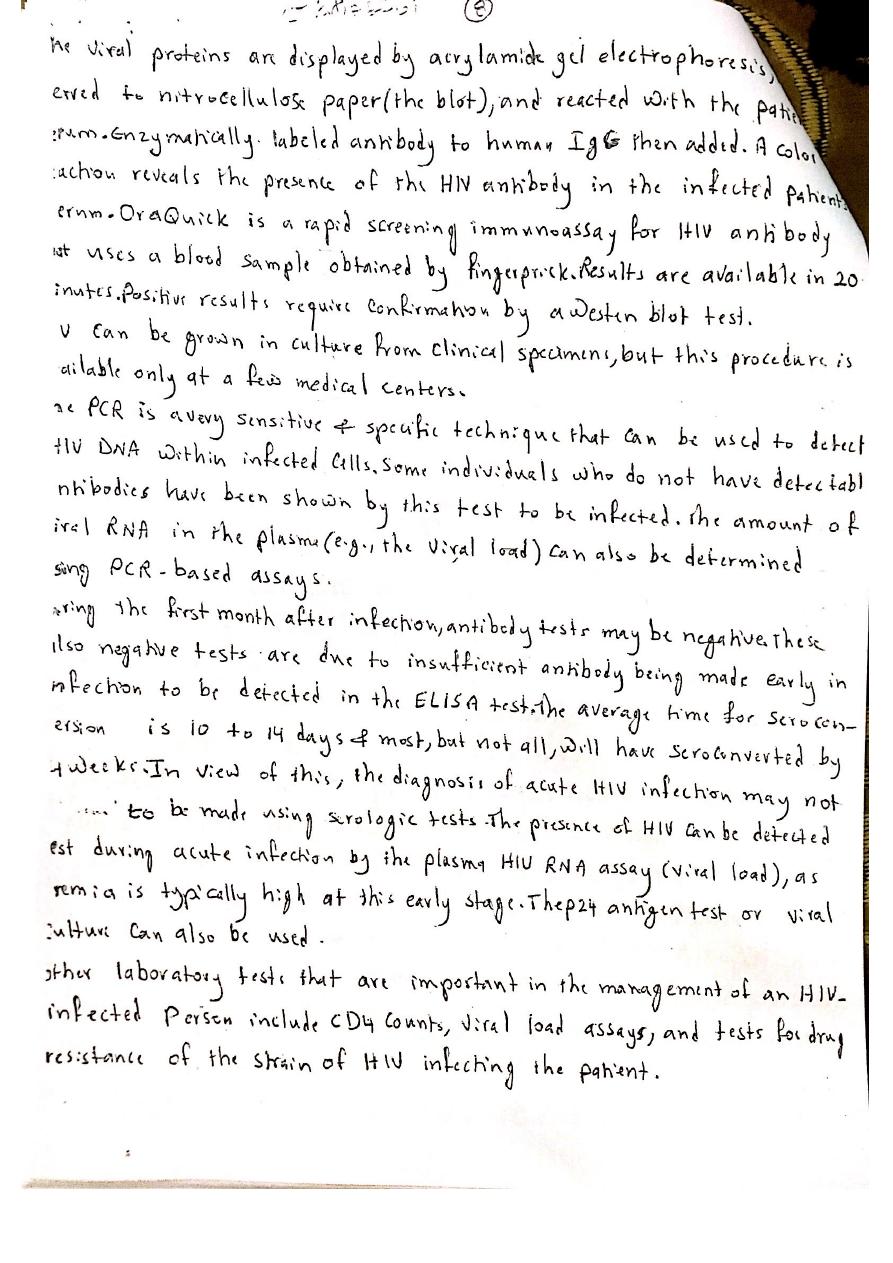 8
he viral proteins are displayed by acrylamide gel electrophoresis,
erred to nitrocellulose paper(the blot), and reacted with the patie
erum. Enzymatically. labeled antibody to human IgG then added. A color
action reveals the presence of the HIV antibody in the infected patient
erum. OraQuick is a rapid screening immunoassay for HIV antibody
at uses a blood sample obtained by fingerprick. Results are available in 20
inutes. Positive results require Confirmation by a Western blot test.
V can be grown in culture from clinical specimens, but this procedure is
ailable only at a few medical centers.
he PCR is a very sensitive & specific technique that can be used to detect
HIV DNA within infected Cells. Some individuals who do not have detectabl
ntibodies have been shown by this test to be infected. The amount of
iral RNA in the plasma (e.g., the viral load) can also be determined
sing PCR-based assays.
uring the first month after infection, antibody tests may be negative. These
alse negative tests are due to insufficient antibody being made early in
infection to be detected in the ELISA test. The average time for serocon-
ersion is 10 to 14 days & most, but not all, will have seroconverted by
4 weeks. In view of this, the diagnosis of acute HIV infection may not
to be made using serologic tests. The presence of HIV can be detected
est during acute infection by the plasma HIV RNA assay (viral load), as
remia is typically high at this early stage. The p24 antigen test or viral
culture can also be used.
other laboratory tests that are important in the management of an HIV-
infected Person include CD4 Counts, viral load assays, and tests for drug
resistance of the strain of HIV infecting the patient.